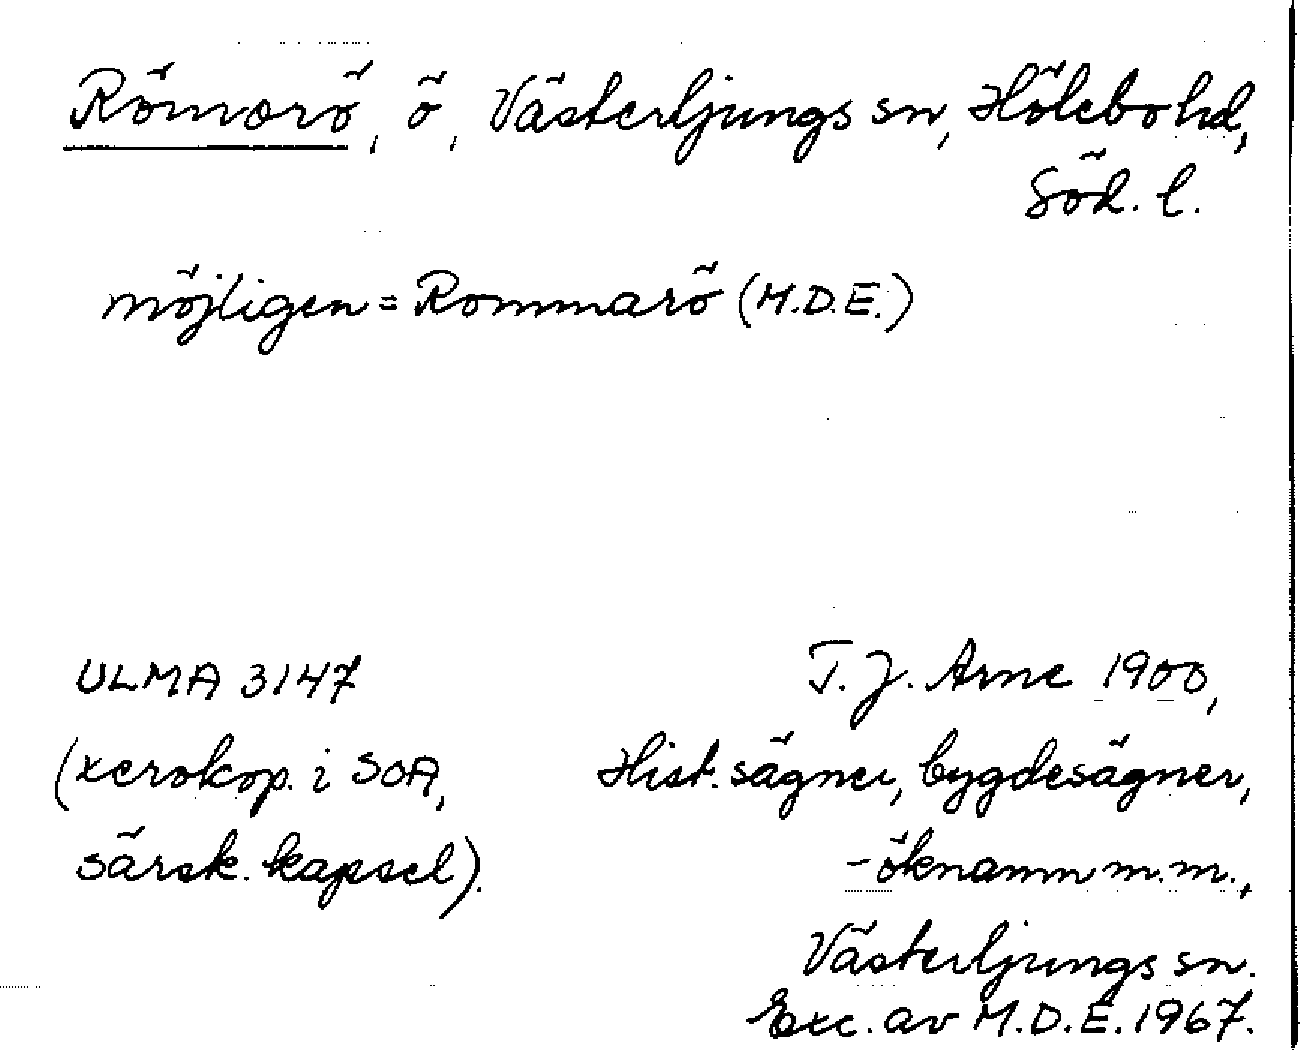 Römarö, ö, Västerljungs sn, Hölebo hd,
Söd. l.
möjligen = Rommarö (M.D.E.)
ULMA 3147
(xerokop. i SOA,
särsk. kapsel).
T. J. Arne 1900,
Hist. sägner, bygdesägner,
-öknamn m.m.,
Västerljungs sn.
Exc. av M.D.E. 1967.